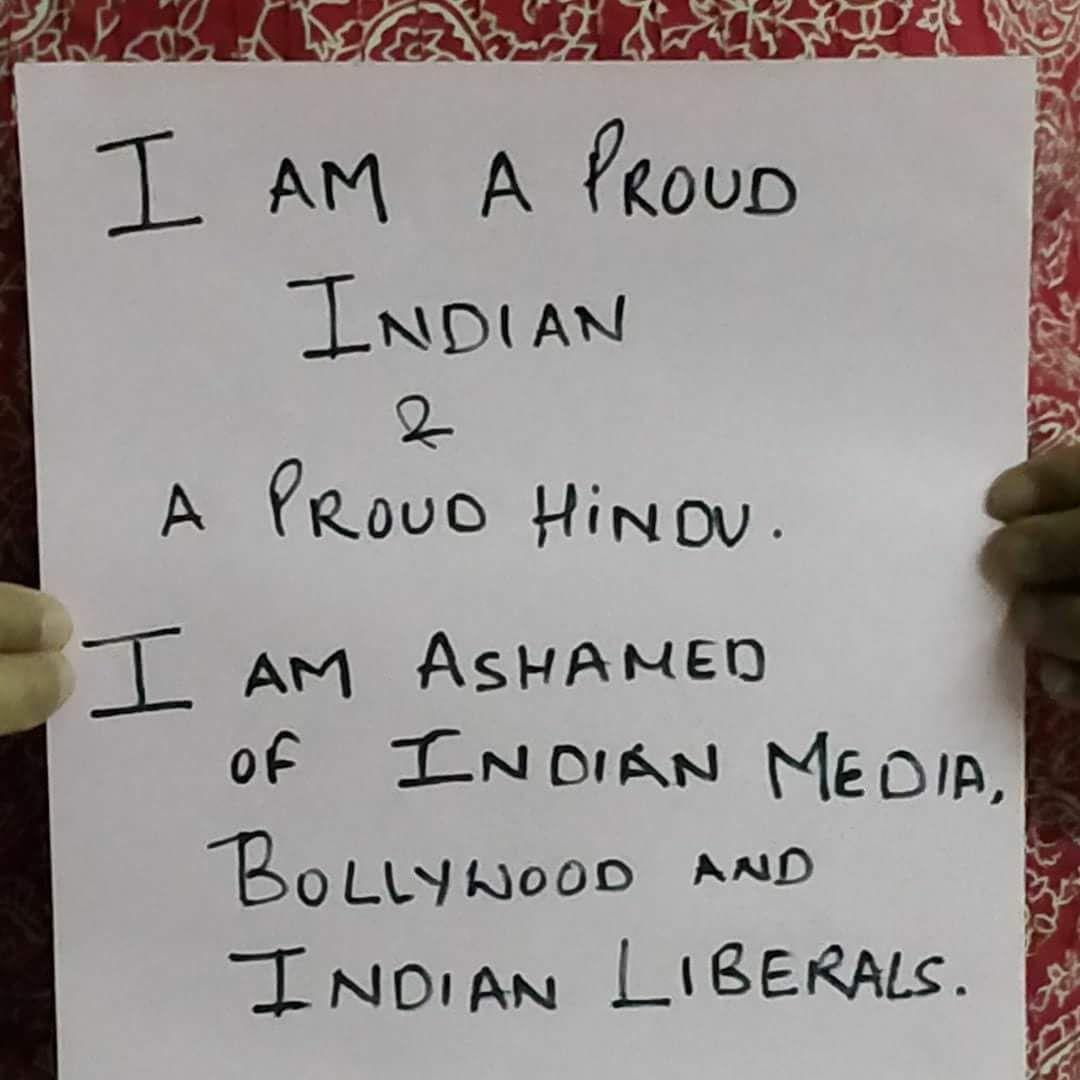 I AM A PROUD
INDIAN
&
A PROUD HiNDU.
I AM ASHAMED
OF INDIAN MEDIA,
BOLLYWOOD AND
INDIAN LIBERALS.